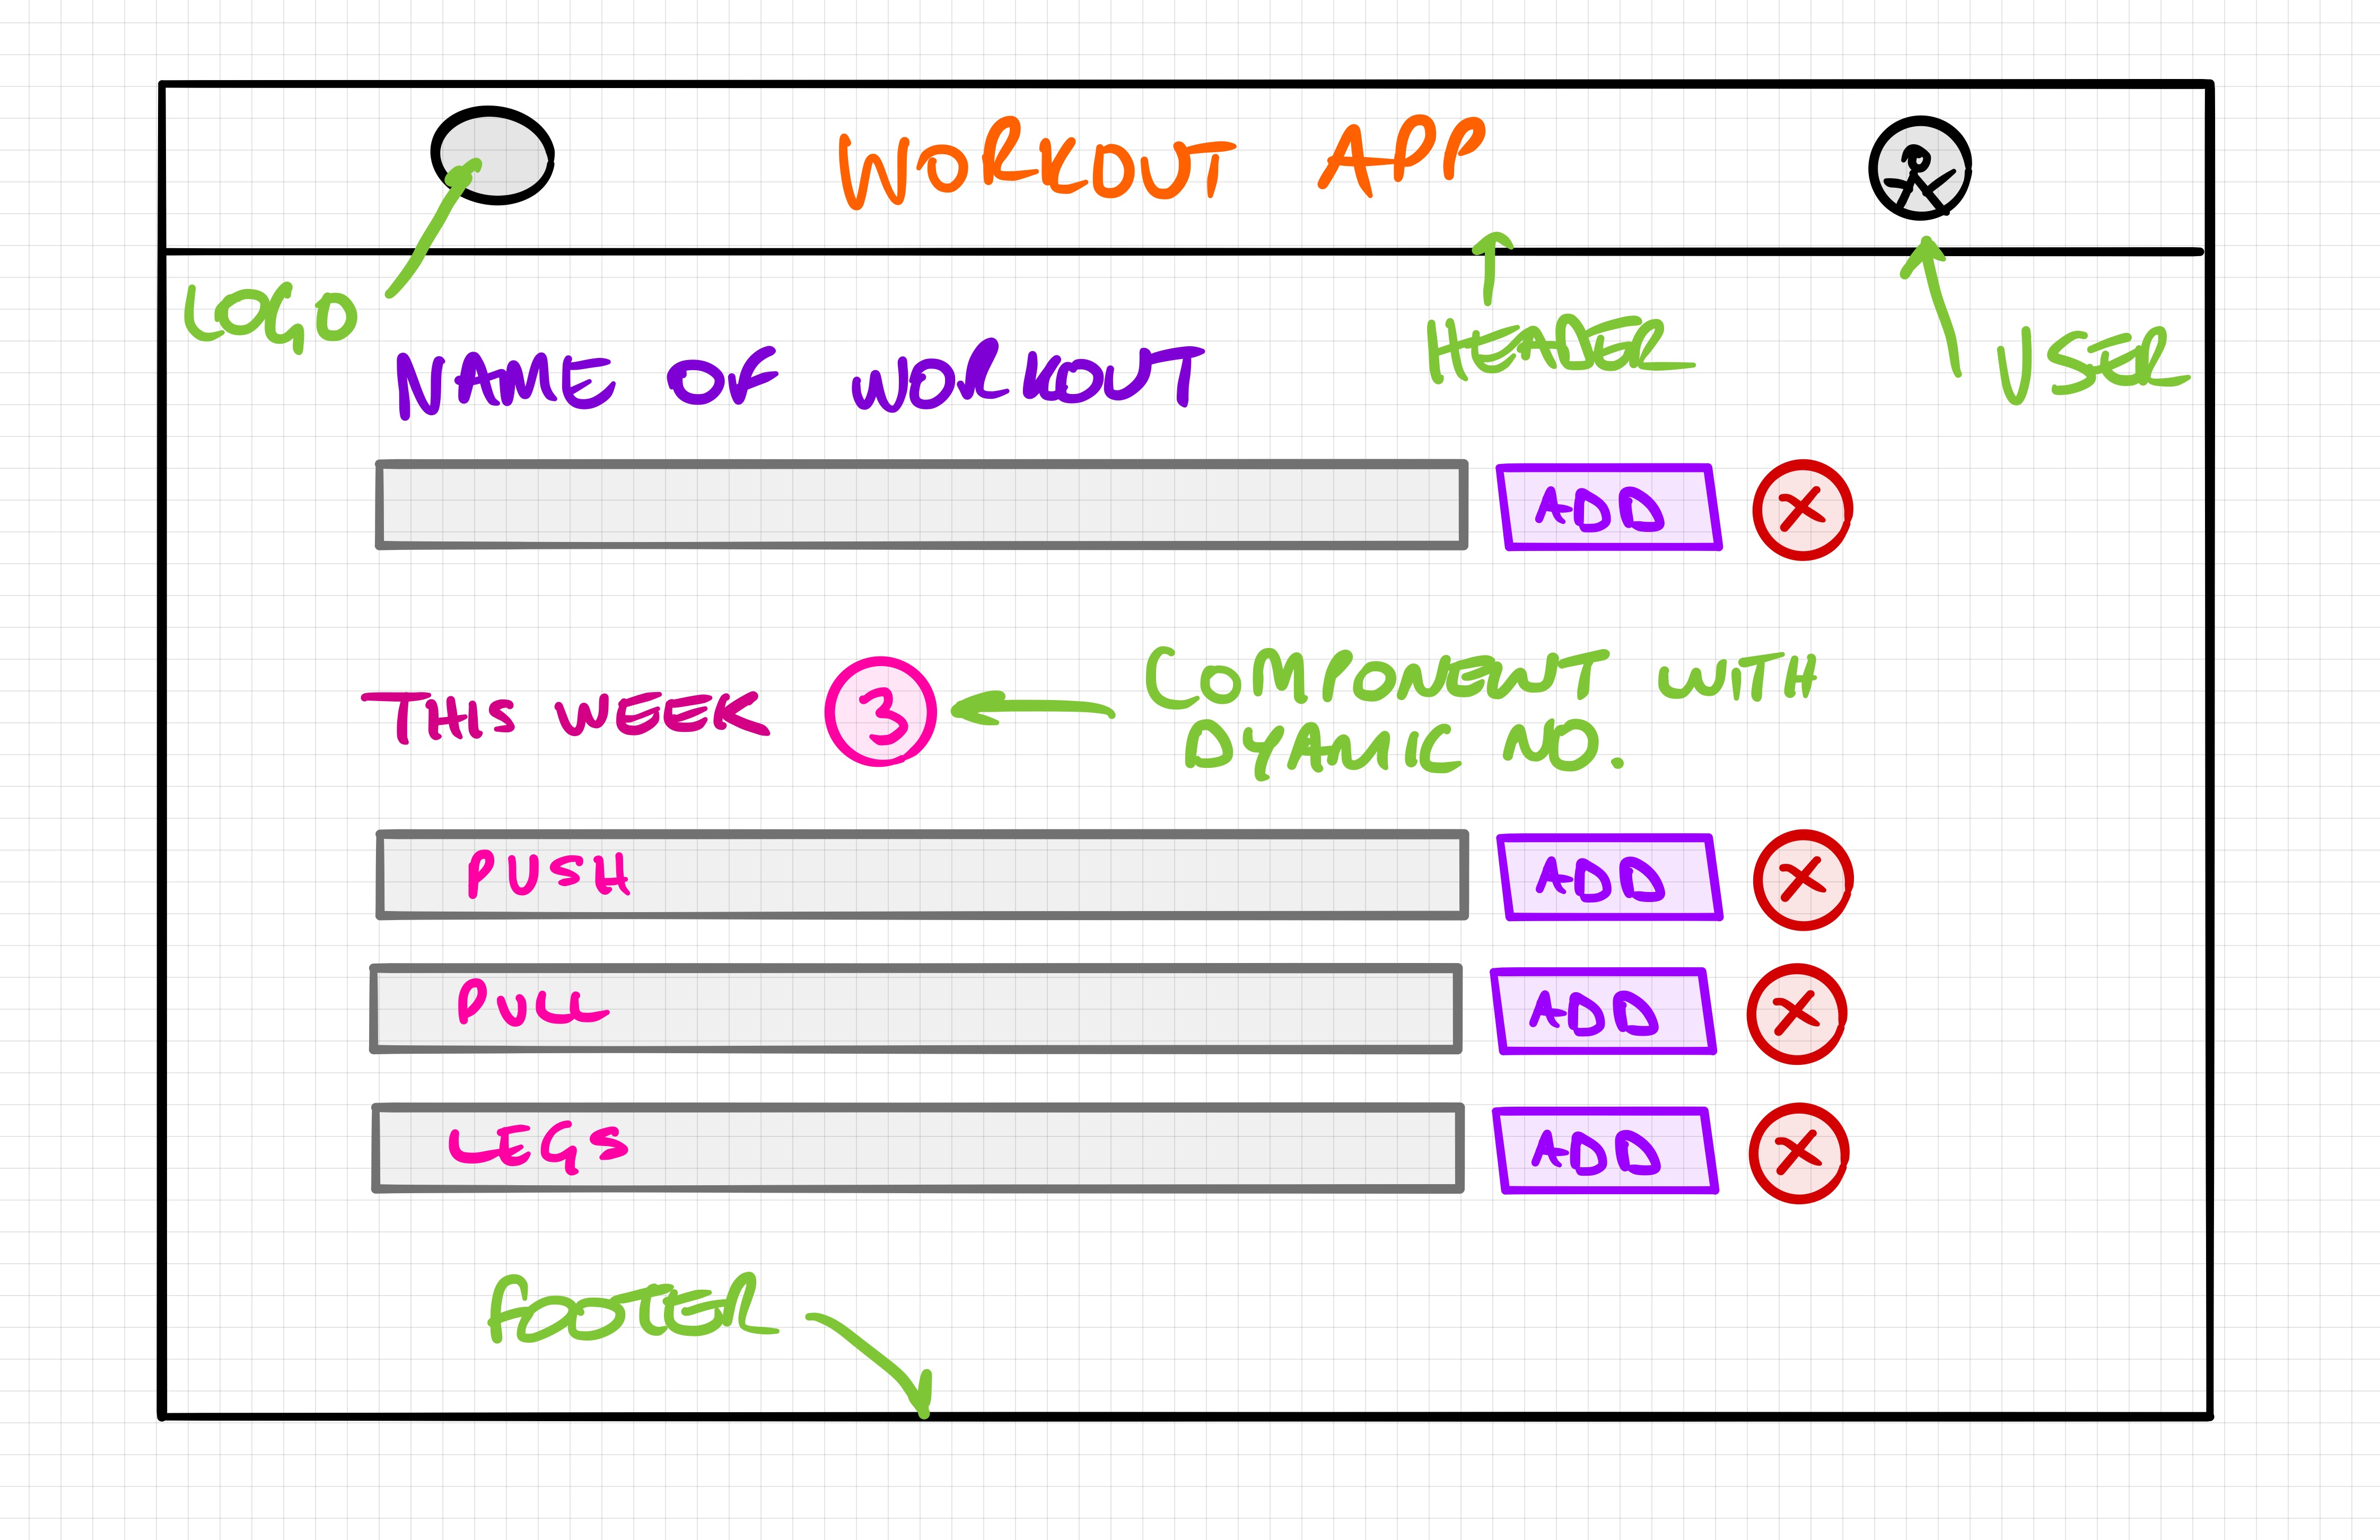 WORKOUT APP
LOGO
HEADER
USER
NAME OF WORKOUT
ADD X
THIS WEEK 3
COMPONENT WITH
DYAMIC NO.
PUSH ADD X
PULL ADD X
LEGS ADD X
FOOTER